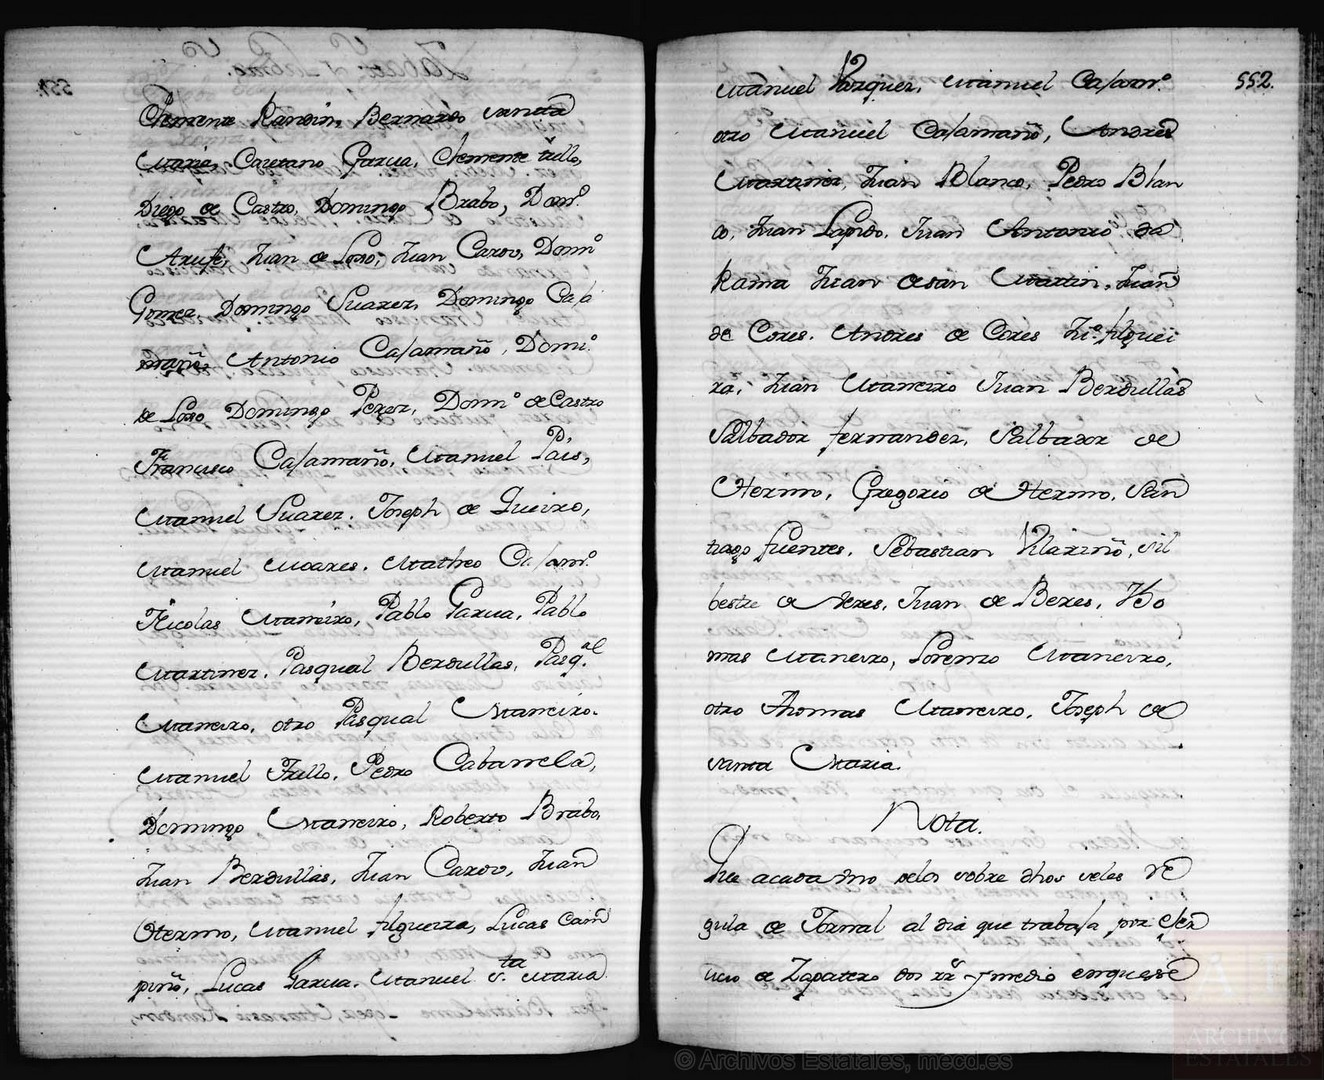 Clemente Randin, Bernardo Santa
Maria, Caietano Garcia, Clemente trillo,
Diego de Castro, Domingo Brabo, Dom.º
Arufe, Juan de Loso, Juan Caxov, Dom.º
Gomez, Domingo Suarez, Domingo Casa
mañ, Antonio Casamañ, Domi.º
de Loso, Domingo Perez, Dom.º de Castro
Francisco Casamañ, Manuel Páis,
Manuel Suarez, Joseph de Queiro,
Manuel Moares, Matheo Casam.º
Nicolas Maneiro, Pablo Garcia, Pablo
Martinez, Pasqual Berdullas, Pasq.al
Maneiro, otro Pasqual Maneiro.
Manuel Trillo, Pedro Cabanela,
Domingo Maneiro, Roberto Brabo,
Juan Berdullas, Juan Caxov, Juan
Otermo, Manuel filgueira, Lucas Cam
piñ, Lucas Garcia, Manuel S.ta Maria
552.
Manuel Vazquez, Manuel Casam.º
otro Manuel Casamañ, Andres
Martinez, Juan Blanco, Pedro Blan
co, Juan Lapido, Juan Antonio da
Rama Juan de San Martin, Juan
de Cores, Andres de Ceres Ju.º filguei
ra, Juan Maneiro Juan Berdullas
Salbador fernandez, Salbador de
Hermo, Gregorio de Hermo, San
tiago fuentes, Sebastian Vilariñ, Sil
bestre de Neres, Juan de Beres, Tho
mas Maneiro, Lorenzo Maneiro,
otro Thomas Maneiro, Joseph de
santa Maria.
Nota.
Que acada uno delos sobre dhos seles Re
gula de Jornal al dia que trabaja por eser
cicio de Zapatero dos rr.s y medio enquese
© Archivos Estatales, mecd.es
ARCHIVOS
ESTATALES